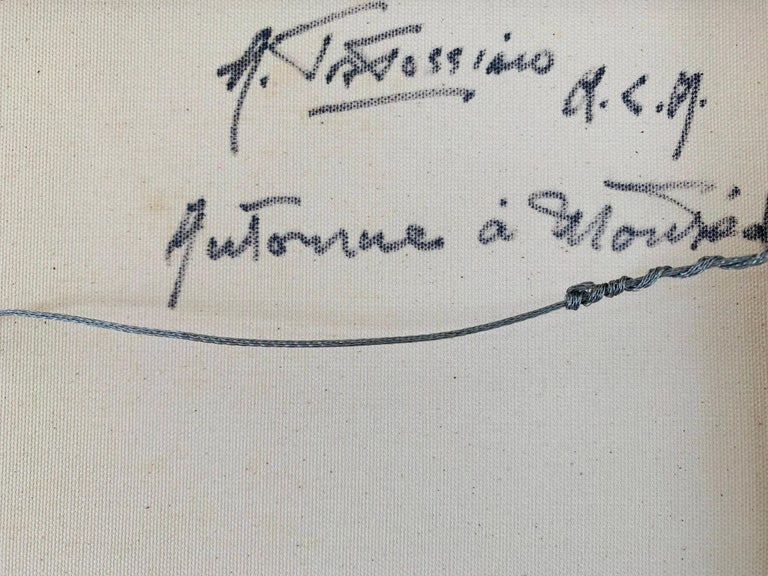 A. Tatossian R.C.A.
Automne à Montréal